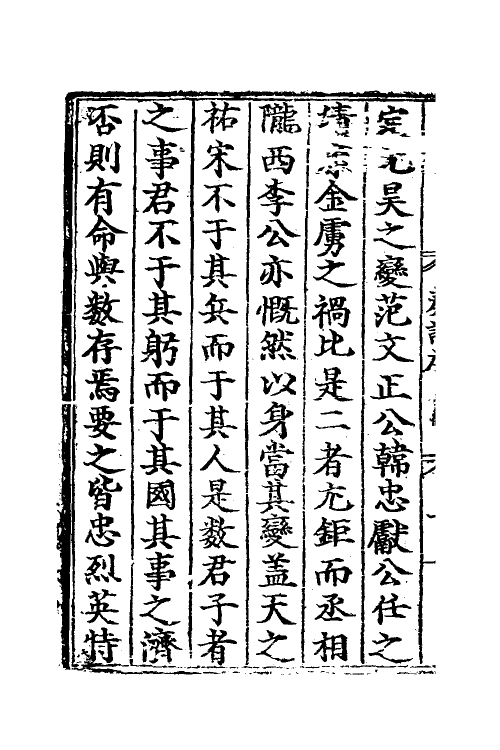 定元昊之變范文正公韓忠獻公任之
靖康金虜之禍比是二者尤鉅而丞相
隴西李公亦慨然以身當其變蓋天之
祐宋不于其兵而于其人是数君子者
之事君不于其躬而于其國其事之濟
否則有命與数存焉要之皆忠烈英特